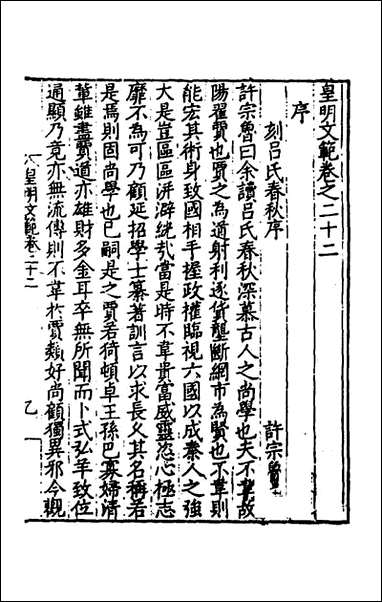 皇明文範卷之二十二
序
刻呂氏春秋序
許宗魯
許宗魯曰余讀呂氏春秋深慕古人之尚學也夫不韋故
陽翟賈也賈之為道射利逐貨壟斷網市為賢也不韋則
能宏其術身致國相手握政權臨視六國以成秦人之強
大是豈區區洴澼絖㦲當是時不韋貴富威靈恣心極志
靡不為可乃顧延招學士纂著訓言以求長乂其名稱若
是焉則固尚學也已嗣是之賈若猗頓卓王孫巴寡婦清
軰雖盡賈道亦雄財多金耳卒無所聞而卜式弘羊致位
通顯乃竟亦無流傳則不韋扵賈𩔖好尚顧獨異邪今觀
皇明文範卷二十二
乙一